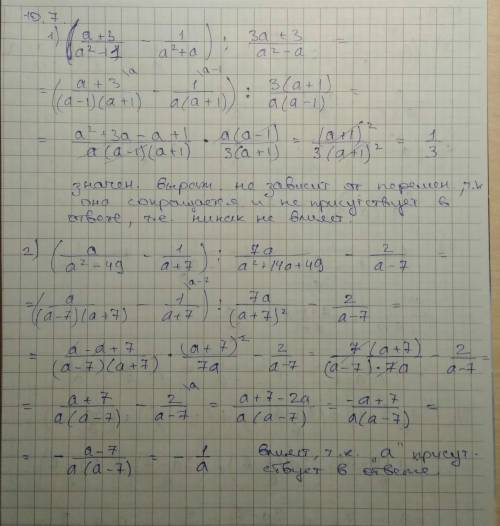 10.7
1) ( (a+3)/(a²-1) - 1/(a²+a) ) : (3a+3)/(a²-a) =
= ( (a+3)\a/((a-1)(a+1)) - 1\a-1/(a(a+1)) ) : 3(a+1)/(a(a-1)) =
= (a²+3a-a+1)/(a(a-1)(a+1)) · a(a-1)/(3(a+1)) = (a+1)²/(3(a+1)²) = 1/3
значен. выраж. не зависит от перемен., т.к
она сокращается и не присутствует в
ответе, т.е. никак не влияет.
2) ( a/(a²-49) - 1/(a+7) ) : 7a/(a²+14a+49) - 2/(a-7) =
= ( a/((a-7)(a+7)) - 1\a-7/(a+7) ) : 7a/(a+7)² - 2/(a-7) =
= (a-a+7)/((a-7)(a+7)) · (a+7)²/7a - 2/(a-7) = 7(a+7)/((a-7)·7a) - 2/(a-7) =
= (a+7)/(a(a-7)) - 2\a/(a-7) = (a+7-2a)/(a(a-7)) = (-a+7)/(a(a-7)) =
= - (a-7)/(a(a-7)) = - 1/a влияет, т.к. "а" присут-
ствует в ответе